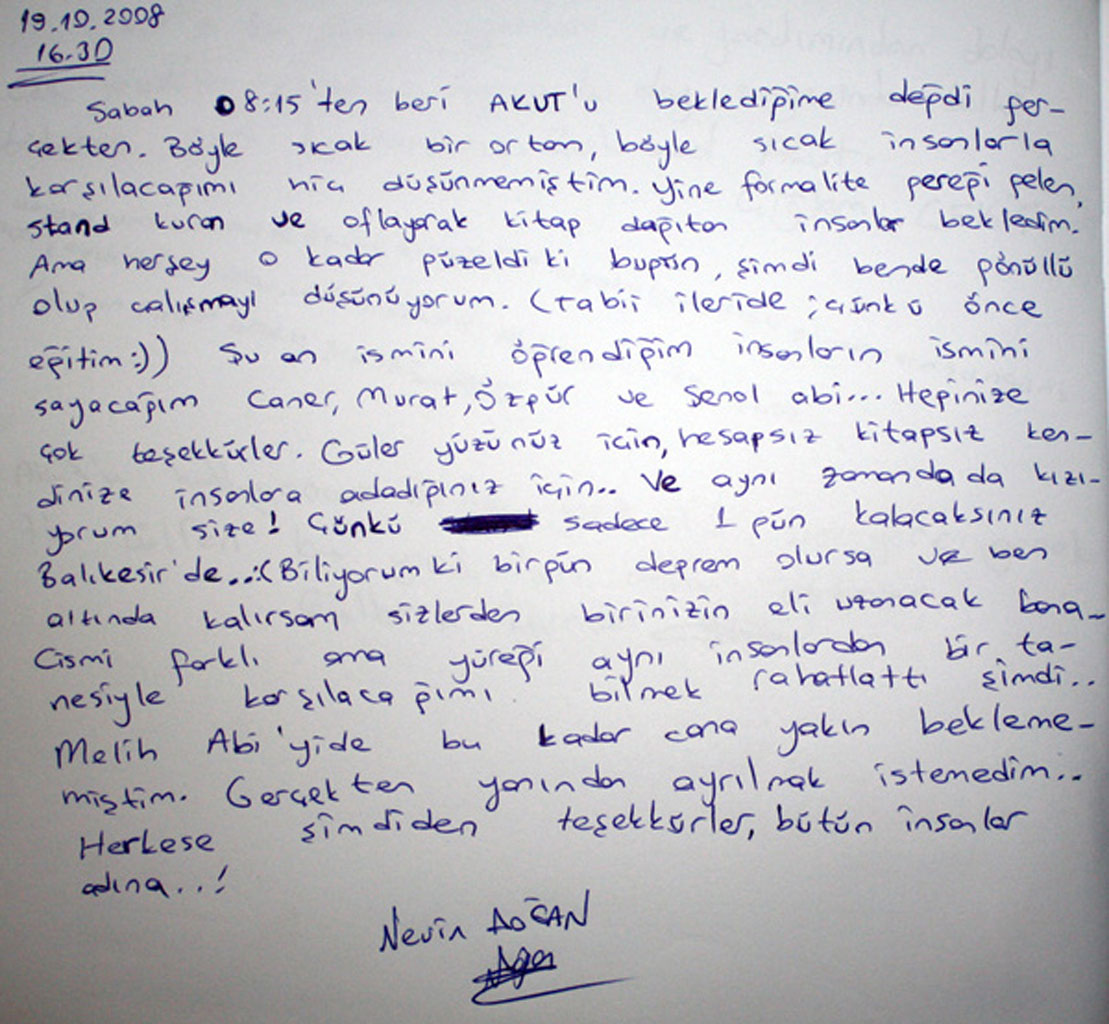 19.10.2008
16.30
Sabah 08:15'ten beri AKUT'u beklediğime değdi ger-
çekten. Böyle sıcak bir ortam, böyle sıcak insanlarla
karşılacağımı hiç düşünmemiştim. Yine formalite gereği gelen,
stand kuran ve oflayarak kitap dağıtan insanlar bekledim.
Ama herşey o kadar güzeldi ki bugün, şimdi bende gönüllü
olup çalışmayı düşünüyorum. (Tabii ileride ; çünkü önce
eğitim :)) Şu an ismini öğrendiğim insanların ismini
sayacağım Caner, Murat, Özgür ve Şenol abi... Hepinize
çok teşekkürler. Güler yüzünüz için, hesapsız kitapsız ken-
dinize insanlara adadığınız için.. Ve aynı zamanda da kızı-
yorum size! Çünkü sadece 1 gün kalacaksınız
Balıkesir'de..:( Biliyorum ki birgün deprem olursa ve ben
altında kalırsam sizlerden birinizin eli uzanacak bana_
Cismi farklı ama yüreği aynı insanlardan bir ta-
nesiyle karşılacağımı bilmek rahatlattı şimdi..
Melih Abi'yide bu kadar cana yakın bekleme-
miştim. Gerçekten yanından ayrılmak istemedim..
Herkese şimdiden teşekkürler, bütün insanlar
adına..!
Nevin DOĞAN